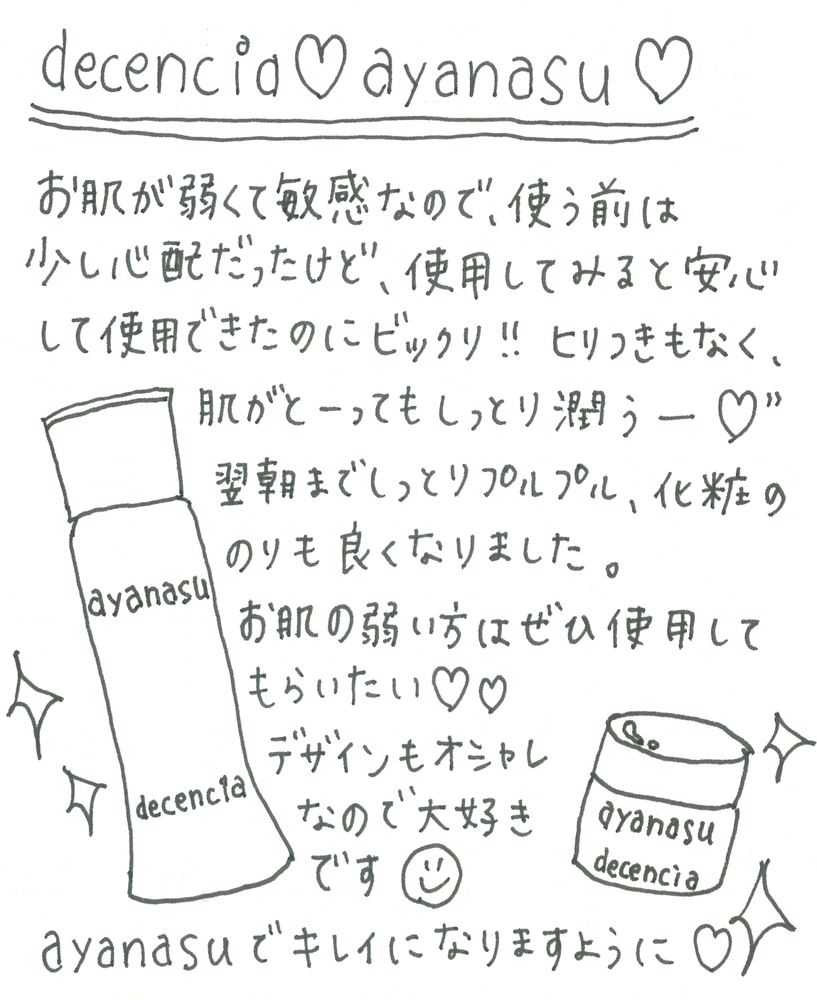 decencia♡ayanasu♡
お肌が弱くて敏感なので、使う前は
少し心配だったけど、使用してみると安心
して使用できたのにビックリ!! ヒリつきもなく、
肌がとーってもしっとり潤うー♡"
翌朝までしっとりプルプル、化粧の
のりも良くなりました。
お肌の弱い方はぜひ使用して
もらいたい♡♡
デザインもオシャレ
なので大好き
です
ayanasuでキレイになりますように♡
ayanasu
decencia
ayanasu
decencia